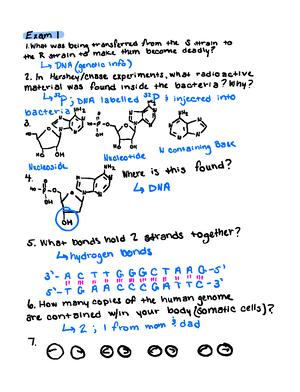 Exam 1
1. What was being transferred from the S strain to
the R strain to make them become deadly?
↳ DNA (genetic info)
2. In Hershey/Chase experiments, what radioactive
material was found inside the bacteria? Why?
↳ ³²P; DNA labelled ³²P & injected into
bacteria
3.
NH₂
NH₂
NH₂
HO
HO-P-O
OH OH
OH OH
Nucleoside
Nucleotide
N containing Base
4.
NH₂
Where is this found?
↳ DNA
OH
5. What bonds hold 2 strands together?
↳ hydrogen bonds
3'- A C T T G G G C T A A G -5'
5'- T G A A C C C G A T T C -3'
6. How many copies of the human genome
are contained w/in your body (somatic cells)?
↳ 2 ; 1 from mom & dad
7.